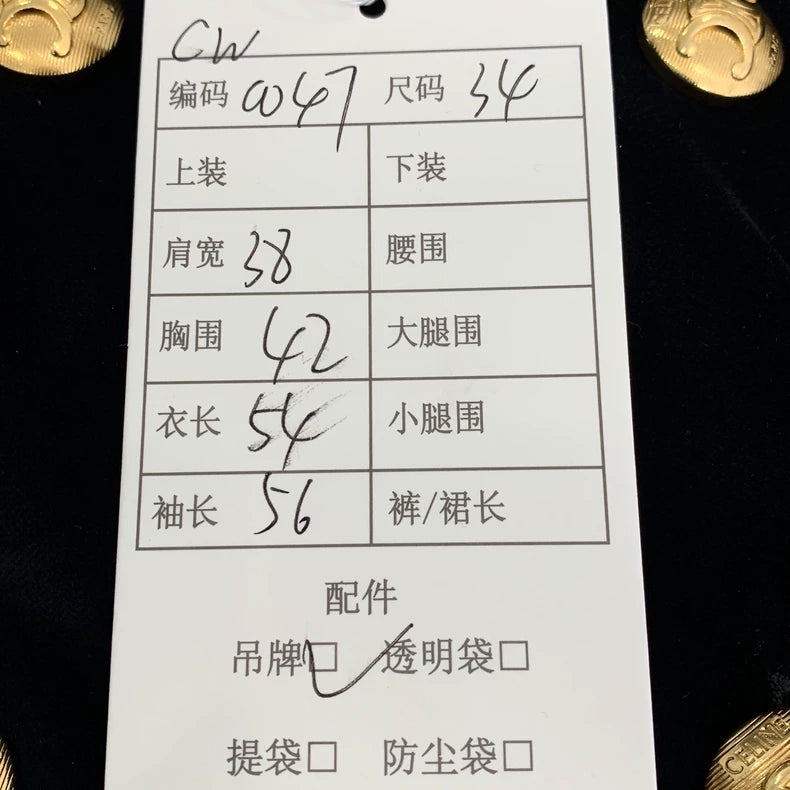 CW
编码 0047 尺码 34
上装 下装
肩宽 38 腰围
胸围 42 大腿围
衣长 54 小腿围
袖长 56 裤/裙长
配件
吊牌□ 透明袋□
提袋□ 防尘袋□
CELINE